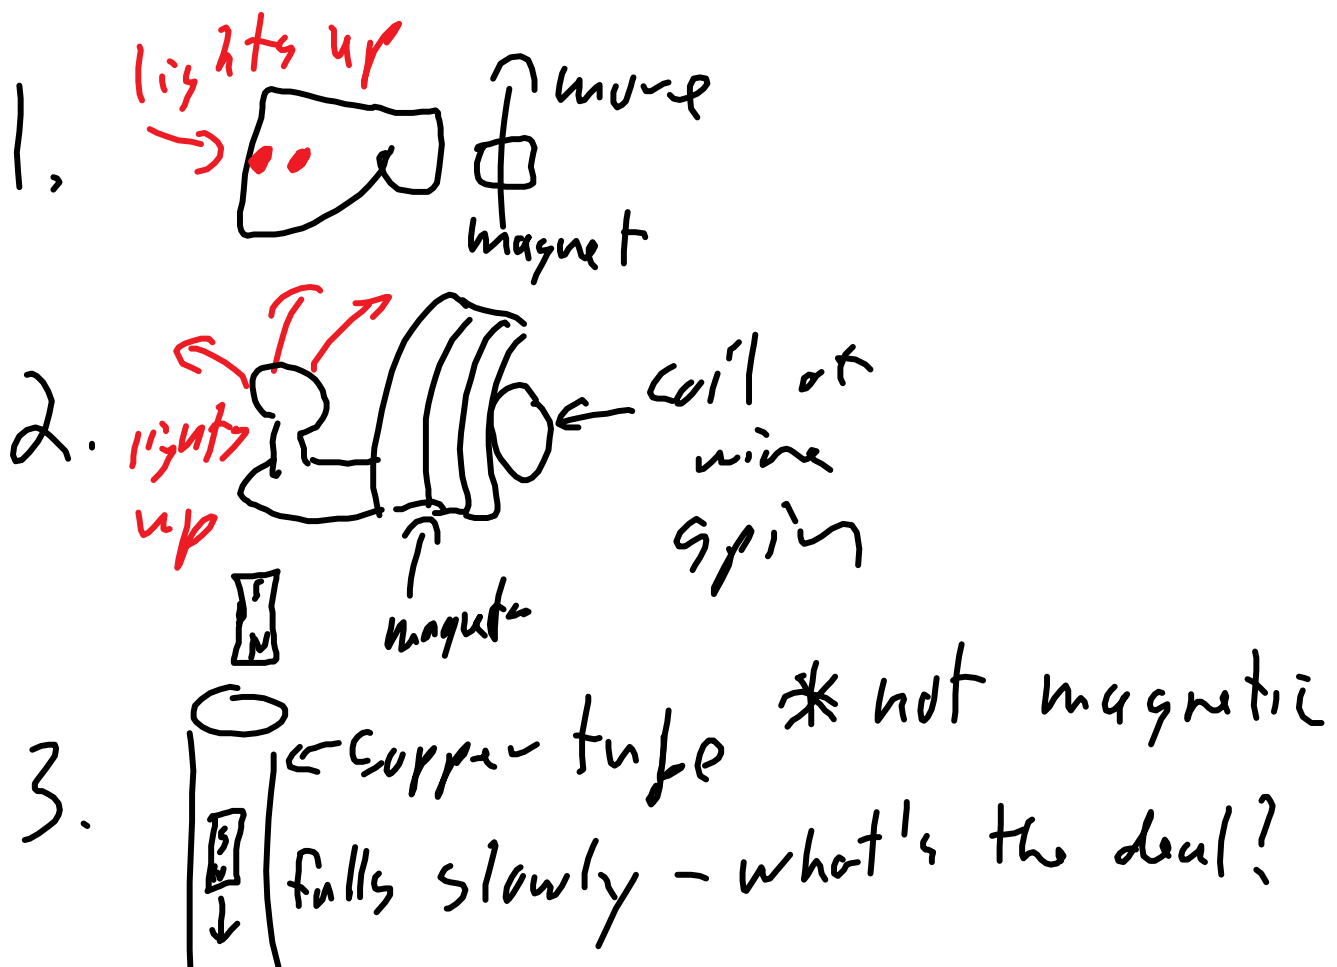 1.
lights up
move
magnet
2.
lights
up
coil of
wire
spin
magnets
S
N
3.
copper tube
* not magnetic
S
N
falls slowly - what's the deal?